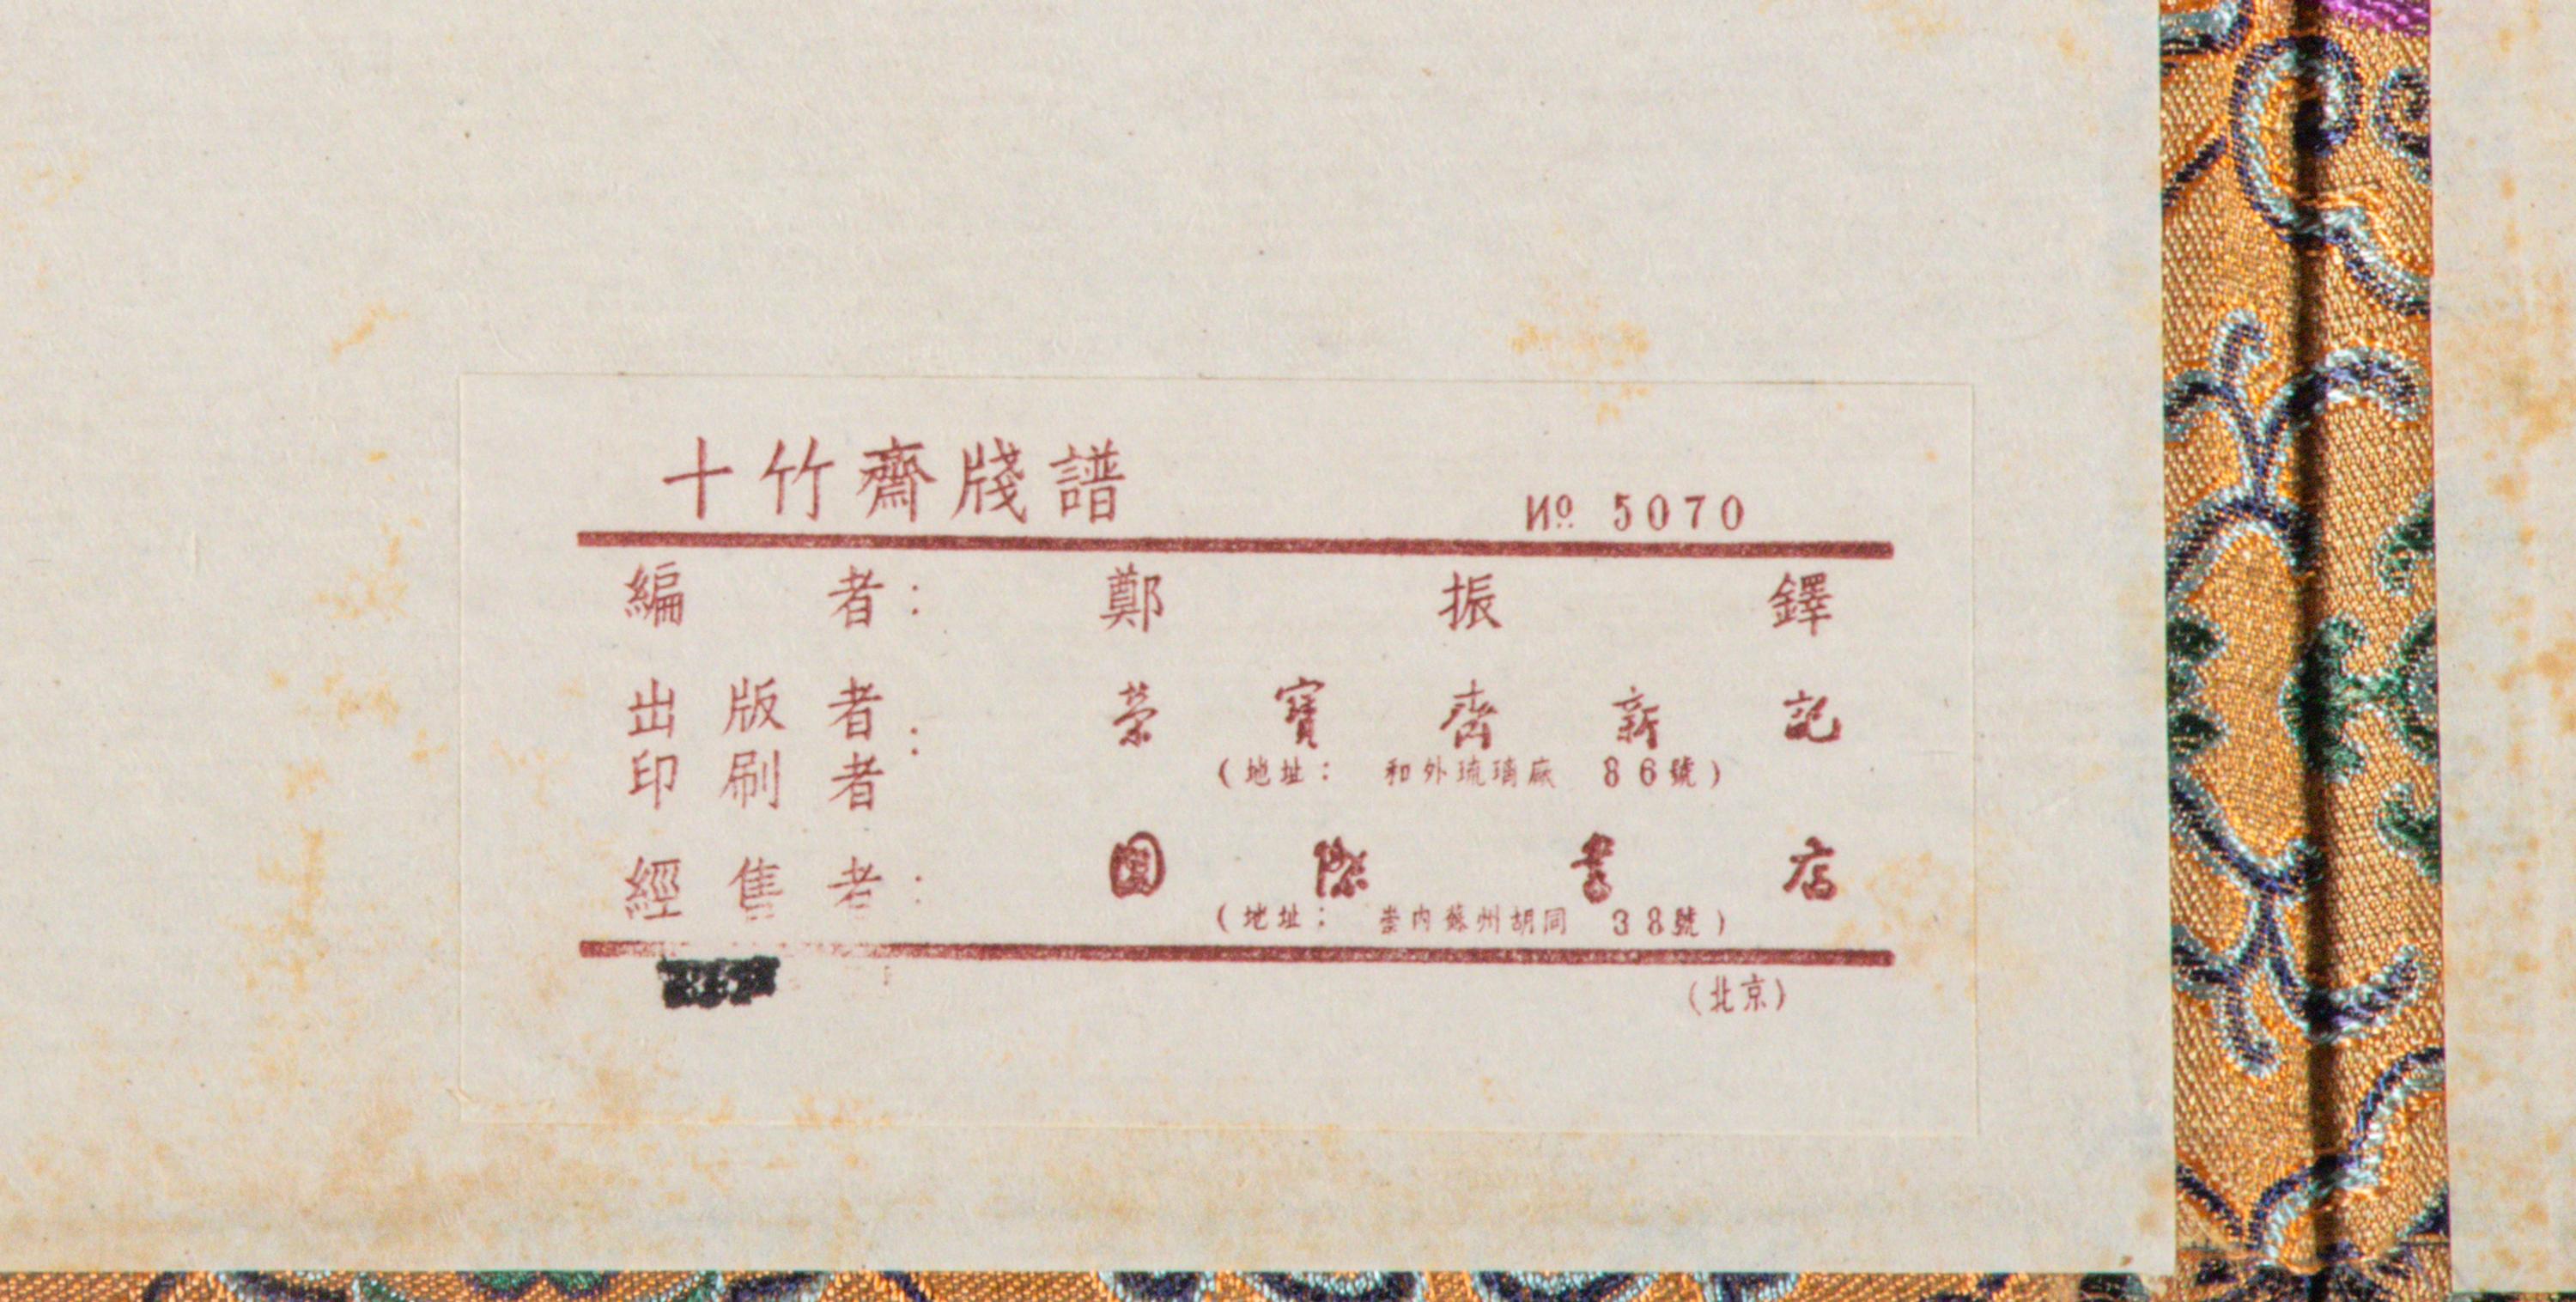 十竹齋牋譜
№ 5070
編者： 鄭振鐸
出版者
印刷者： 榮寶齋新記
（地址： 和外琉璃廠 86號）
經售者： 國際書店
（地址： 崇内蘇州胡同 38號）
（北京）